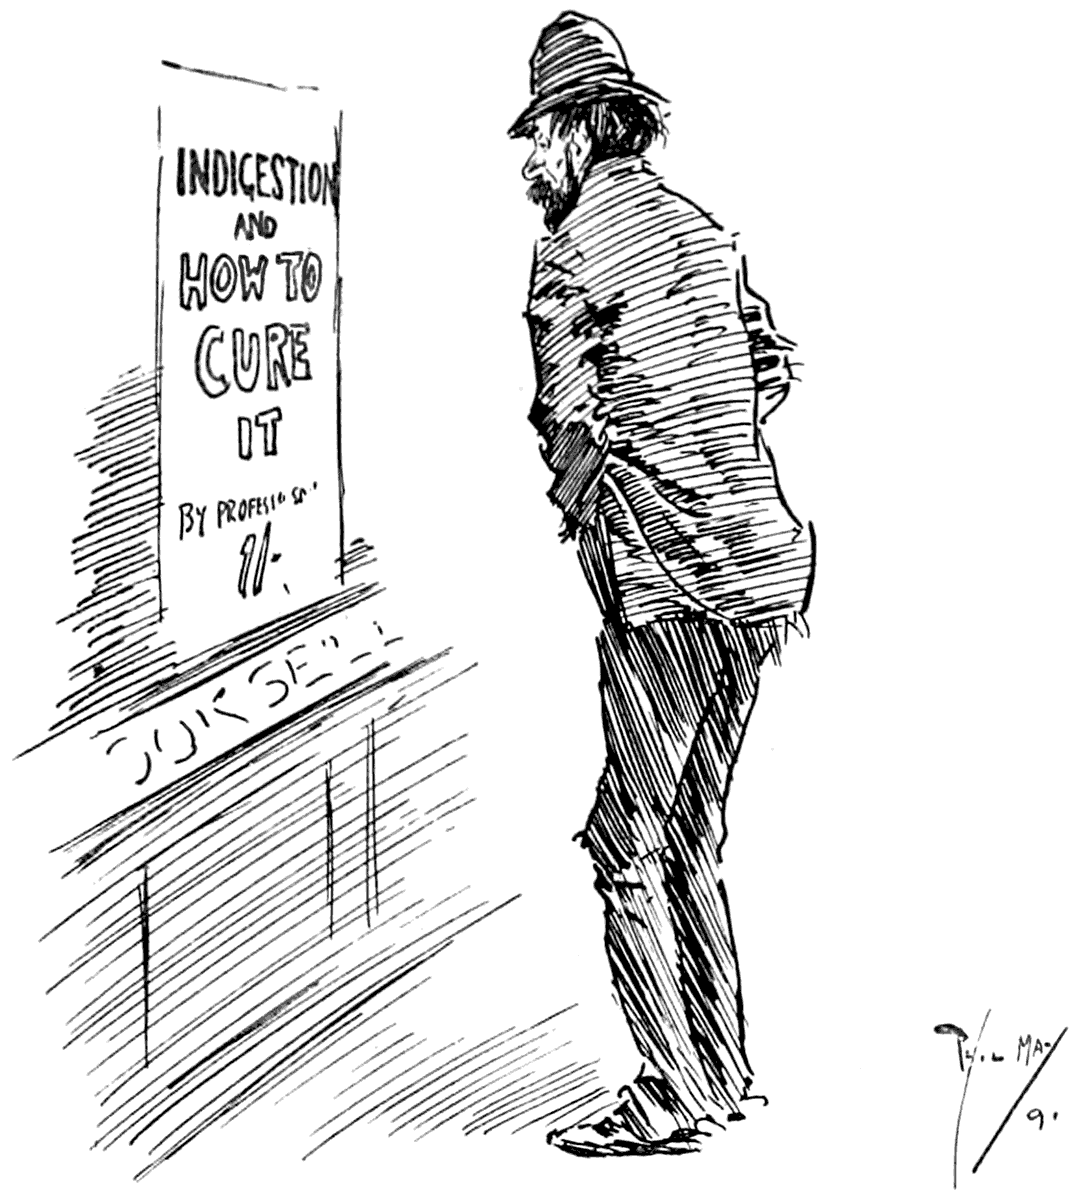 INDIGESTION
AND
HOW TO
CURE
IT
BY PROFESS
1/-
OOKSELL
PHIL MAY
9